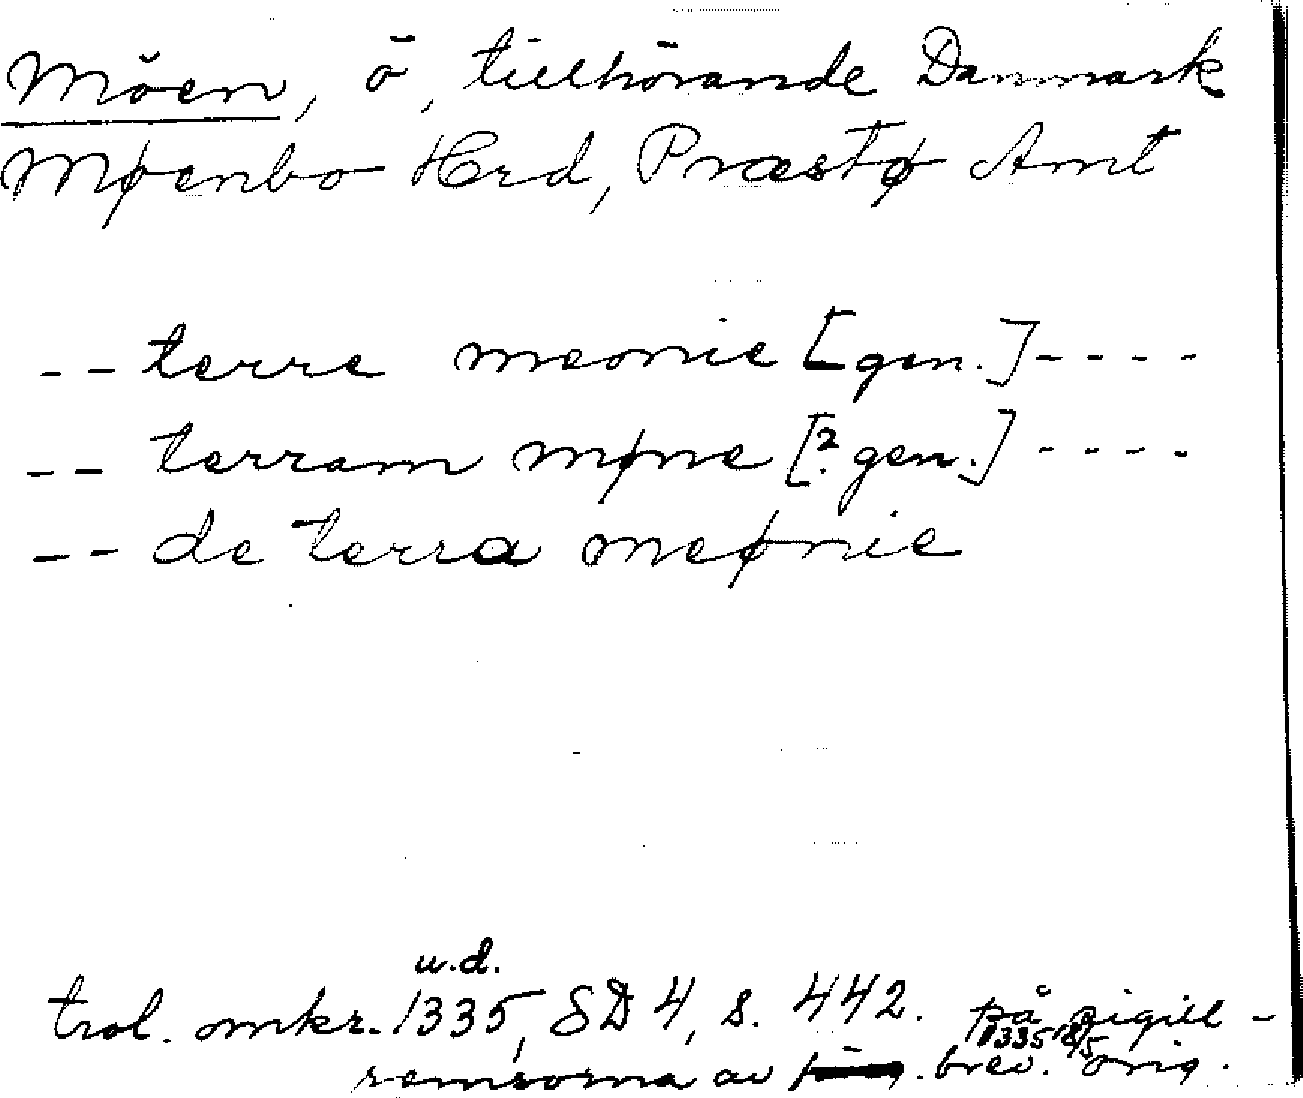 Möen, ö, tillhörande Danmark
Møenbo Hrd, Præstø Amt
-- terre meonie [gen.] ----
-- terram møne [? gen.] ----
-- de terra meønie
u.d.
trol. omkr. 1335, SD 4, s. 442. på sigill-
1335 18/5
remsorna av brev. orig.